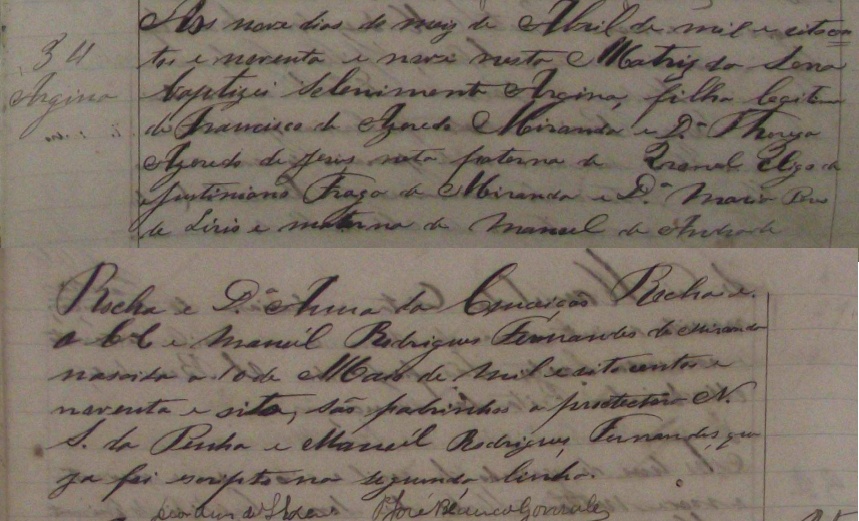 34
Argina
Aos nove dias do mez de Abril de mil e oitocen
tos e noventa e nove nesta Matriz da Serra
baptizei Solenimente Argina, filha legitima
de Francisco de Azeredo Miranda e D.ª Thereza
Azeredo de Jesus neta paterna de
Justiniano Fraga de Miranda e D.ª Maria
de Lirio e materna de Manoel de Andrade
Rocha e D.ª Anna da Conceição Rocha e.
e Manoél Rodrigues Fernandes de Miranda
nascida a 10 de Maio de mil e oito centos e
noventa e oito, são padrinhos a protectora N.
S. da Penha e Manoél Rodrigues Fernandes, que
ja foi escripto na segunda linha.